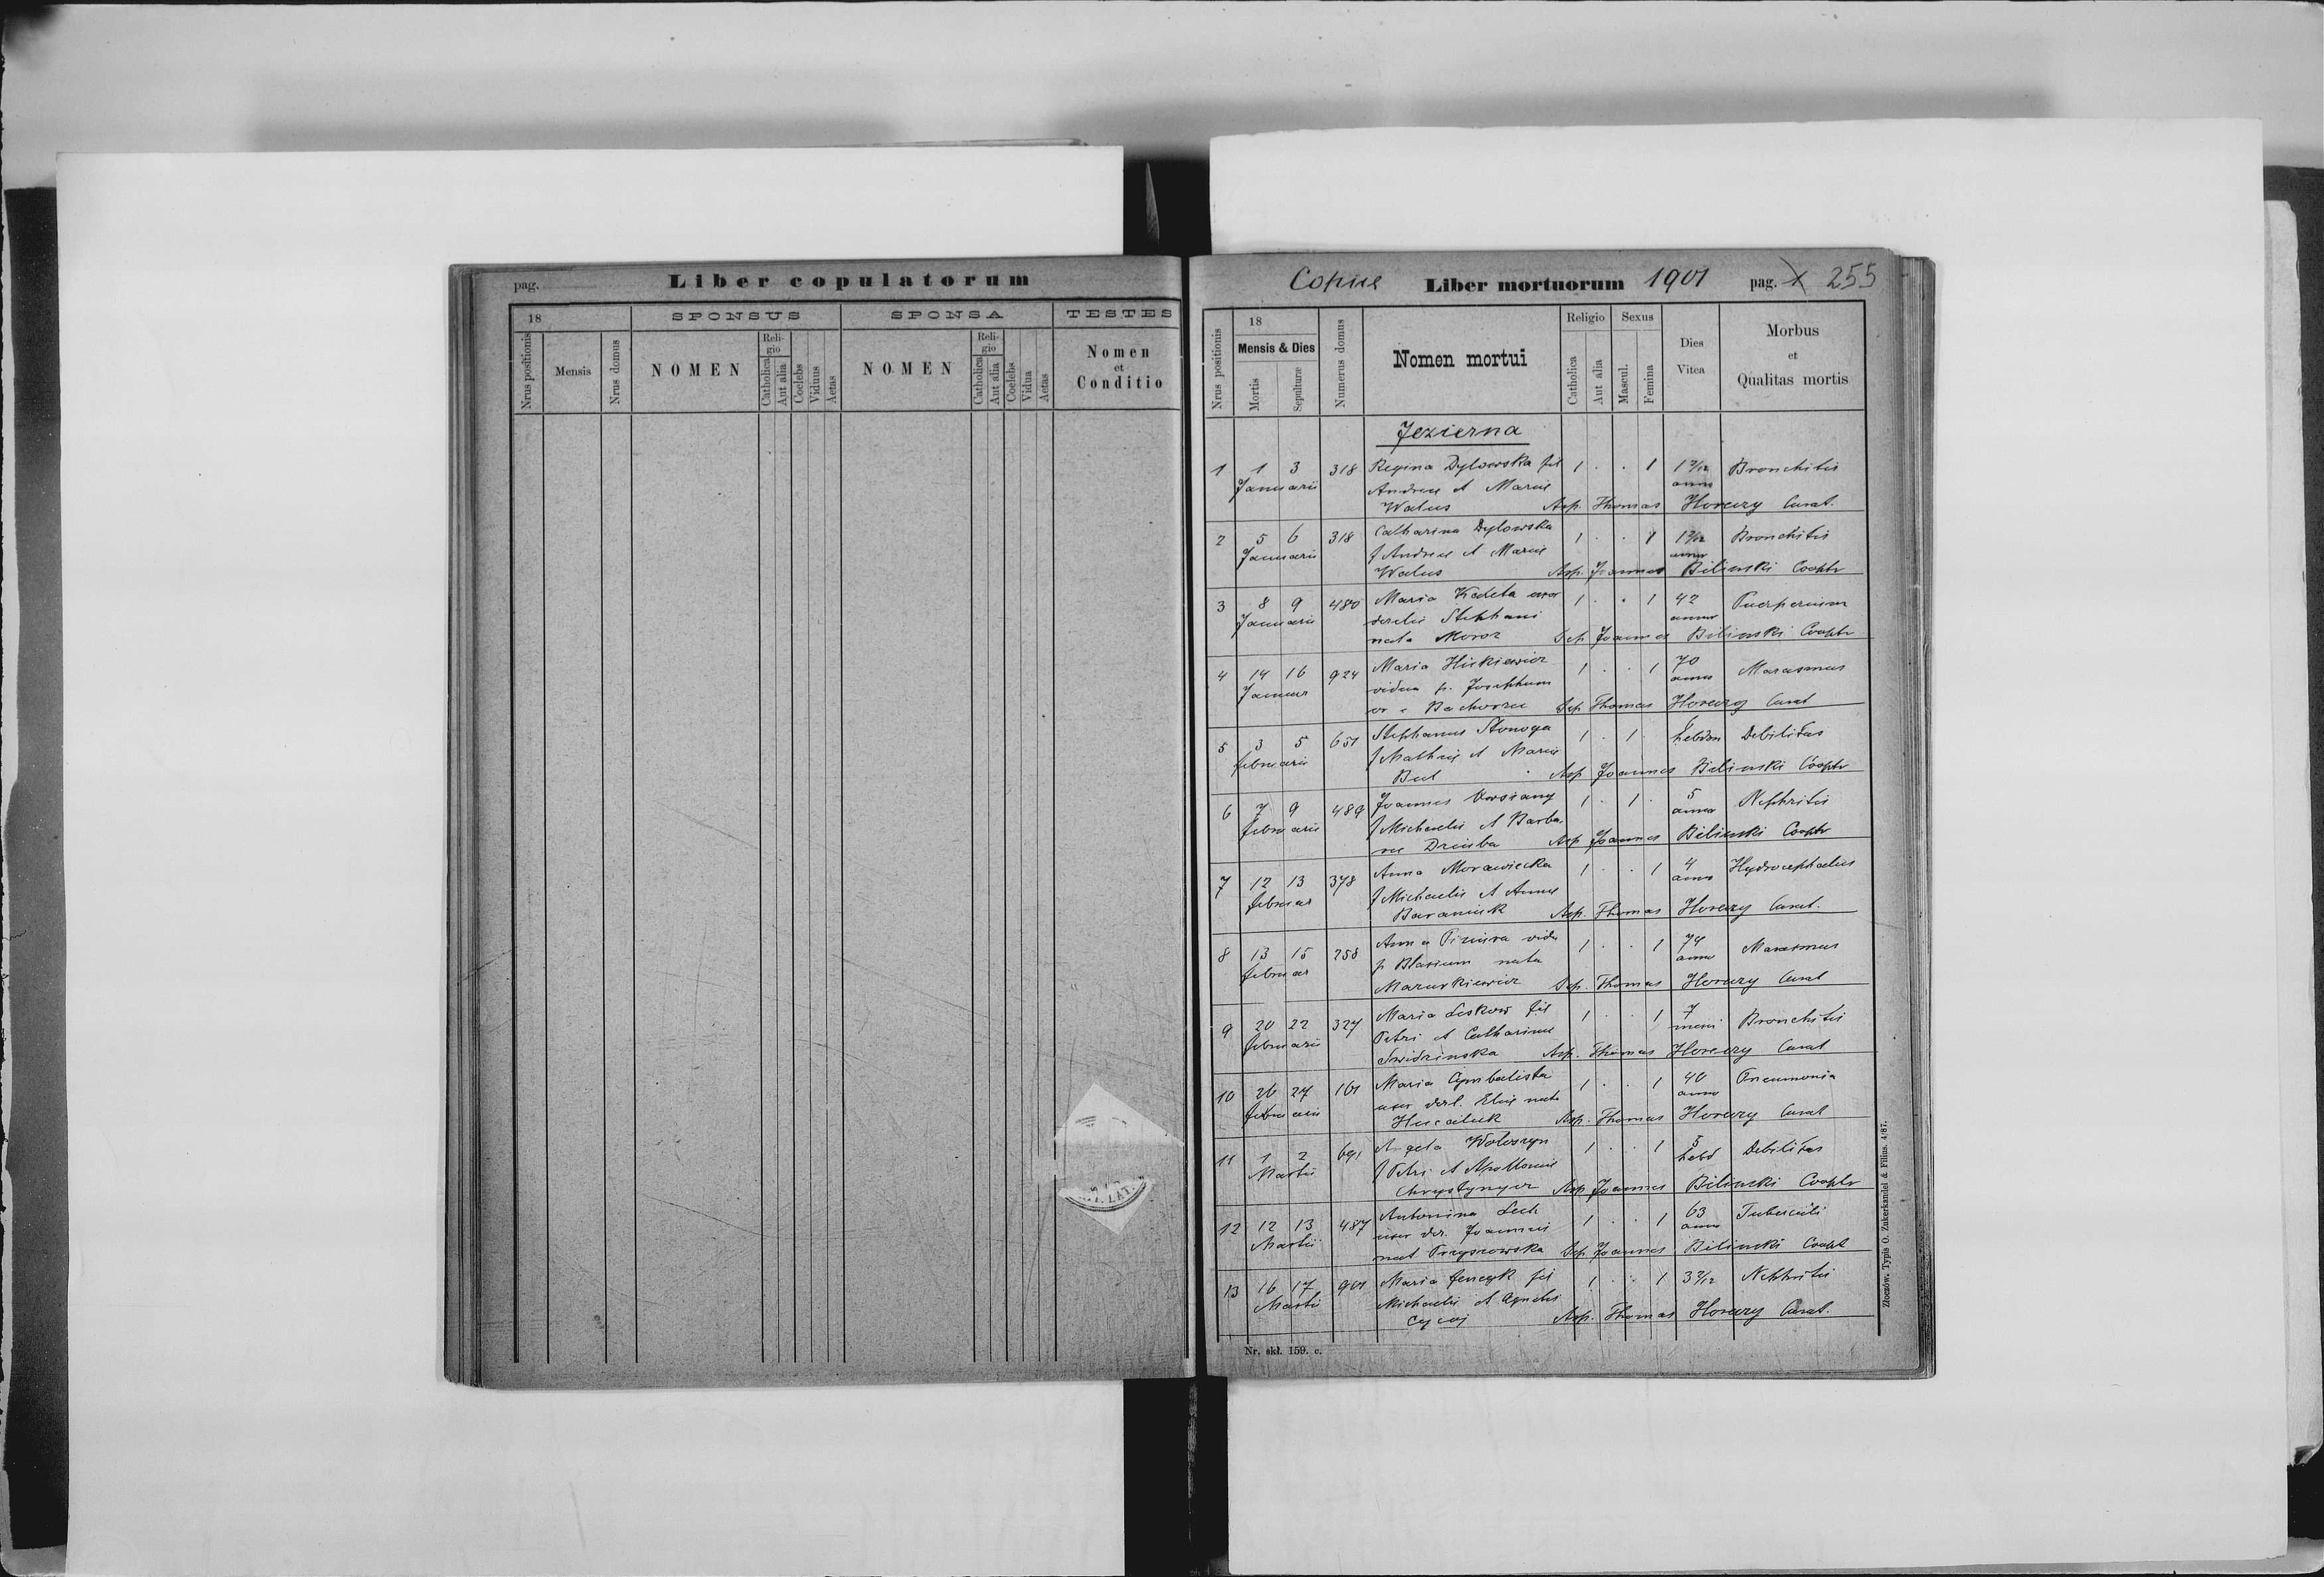 pag.
Liber copulatorum
18
SPONSUS
SPONSA
TESTES
Nrus positionis
Mensis
Nrus domus
NOMEN
Religio
Catholica
Aut alia
Coelebs
Viduus
Aetas
NOMEN
Religio
Catholica
Aut alia
Coelebs
Vidua
Aetas
Nomen
et
Conditio
Copiae Liber mortuorum 1901 pag. 1 255
Nrus positionis
18
Mensis & Dies
Mortis
Sepulturæ
Numerus domus
Nomen mortui
Religio
Catholica
Aut alia
Sexus
Mascul.
Femina
Dies
Vitea
Morbus
et
Qualitas mortis
Jezierna
1 1 3 318 Regina Dylowska fil 1 . . 1 Bronchitis
Januarii Andreae et Mariae anno
Walus Asp. Thomas Horeczy Curat.
2 5 6 318 Catharina Dylowska 1 . . 1 Bronchitis
Januarii f Andreae et Mariae
Walus Asp. Joannes Bilinski Cooptr
3 8 9 480 Maria uxor 1 . . 1 42 Puerperium
Januarii Stephani
nata Moroz Sep Joannes Bilinski Cooptr
4 14 16 924 Maria Hickiewicz 1 . . 1 70 Marasmus
Januar vidua p. Josephum annos
Sep Thomas Horeczy Curat
5 3 5 651 Stephanus Stonoga 1 . 1 . hebdom Debilitas
februarii f Mathiae et Mariae
But Asp Joannes Bilinski Cooptr
6 7 9 489 Joannes 1 . 1 . 5 Nephritis
februarii f Michaelis et Barba-
rae Dziuba Asp Joannes Bilinski Cooptr
7 12 13 378 Anna Morawiecka 1 . . 1 4 Hydrocephalus
februar f Michaelis et Annae annos
Baraniuk Asp. Thomas Horeczy Curat.
8 13 15 258 Anna vidu 1 . . 1 74 Marasmus
februar p Blasium nata
Mazurkiewicz Sep. Thomas Horeczy Curat
9 20 22 327 Maria Leskow fil 1 . . 1 7 Bronchitis
februarii Petri et Catharinae mensi
Swidzinska Asp. Thomas Horeczy Curat
10 26 27 161 Maria Cymbalista 1 . . 1 40 Pneumonia
februarii uxor derl. Eliae nata
Hucaluk Asp. Thomas Horeczy Curat
11 1 2 691 Angela Woloszyn 1 . . 1 5 Debilitas
Martii f Petri et Apolloniae hebd
Chrystynycz Asp. Joannes Bilinski Cooptr
12 12 13 487 Antonina Lech 1 . . 1 63 Tuberculi
Martii uxor der. Joannis
nat Sep. Joannes Bilinski Coopt
13 16 17 901 Maria Jenczyk fil 1 . . 1 Nephritis
Martii Michaelis et Agnetis
Asp. Thomas Horeczy Curat.
Nr. skł. 159. c.
Złoczów. Typis O. Zukerkandel & Filius. 4/87.